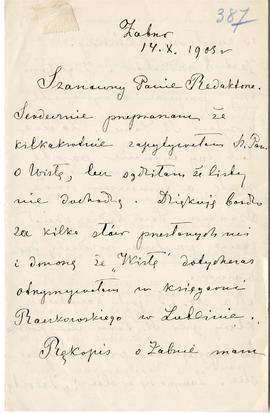 387
Żabno
14. X. 1903 r
Szanowny Panie Redaktorze.
Serdecznie przepraszam że
kilkakrotnie zapytywałem Sz. Pana
o Wisłę, lecz sądziłem że listy
nie dochodzą. Dziękuję bardzo
za kilka słów przesłanych mi
i donoszę że „Wisłę" dotychczas
otrzymywałem w księgarni
Raczkowskiego w Lublinie.
Rękopis o Żabnie mam